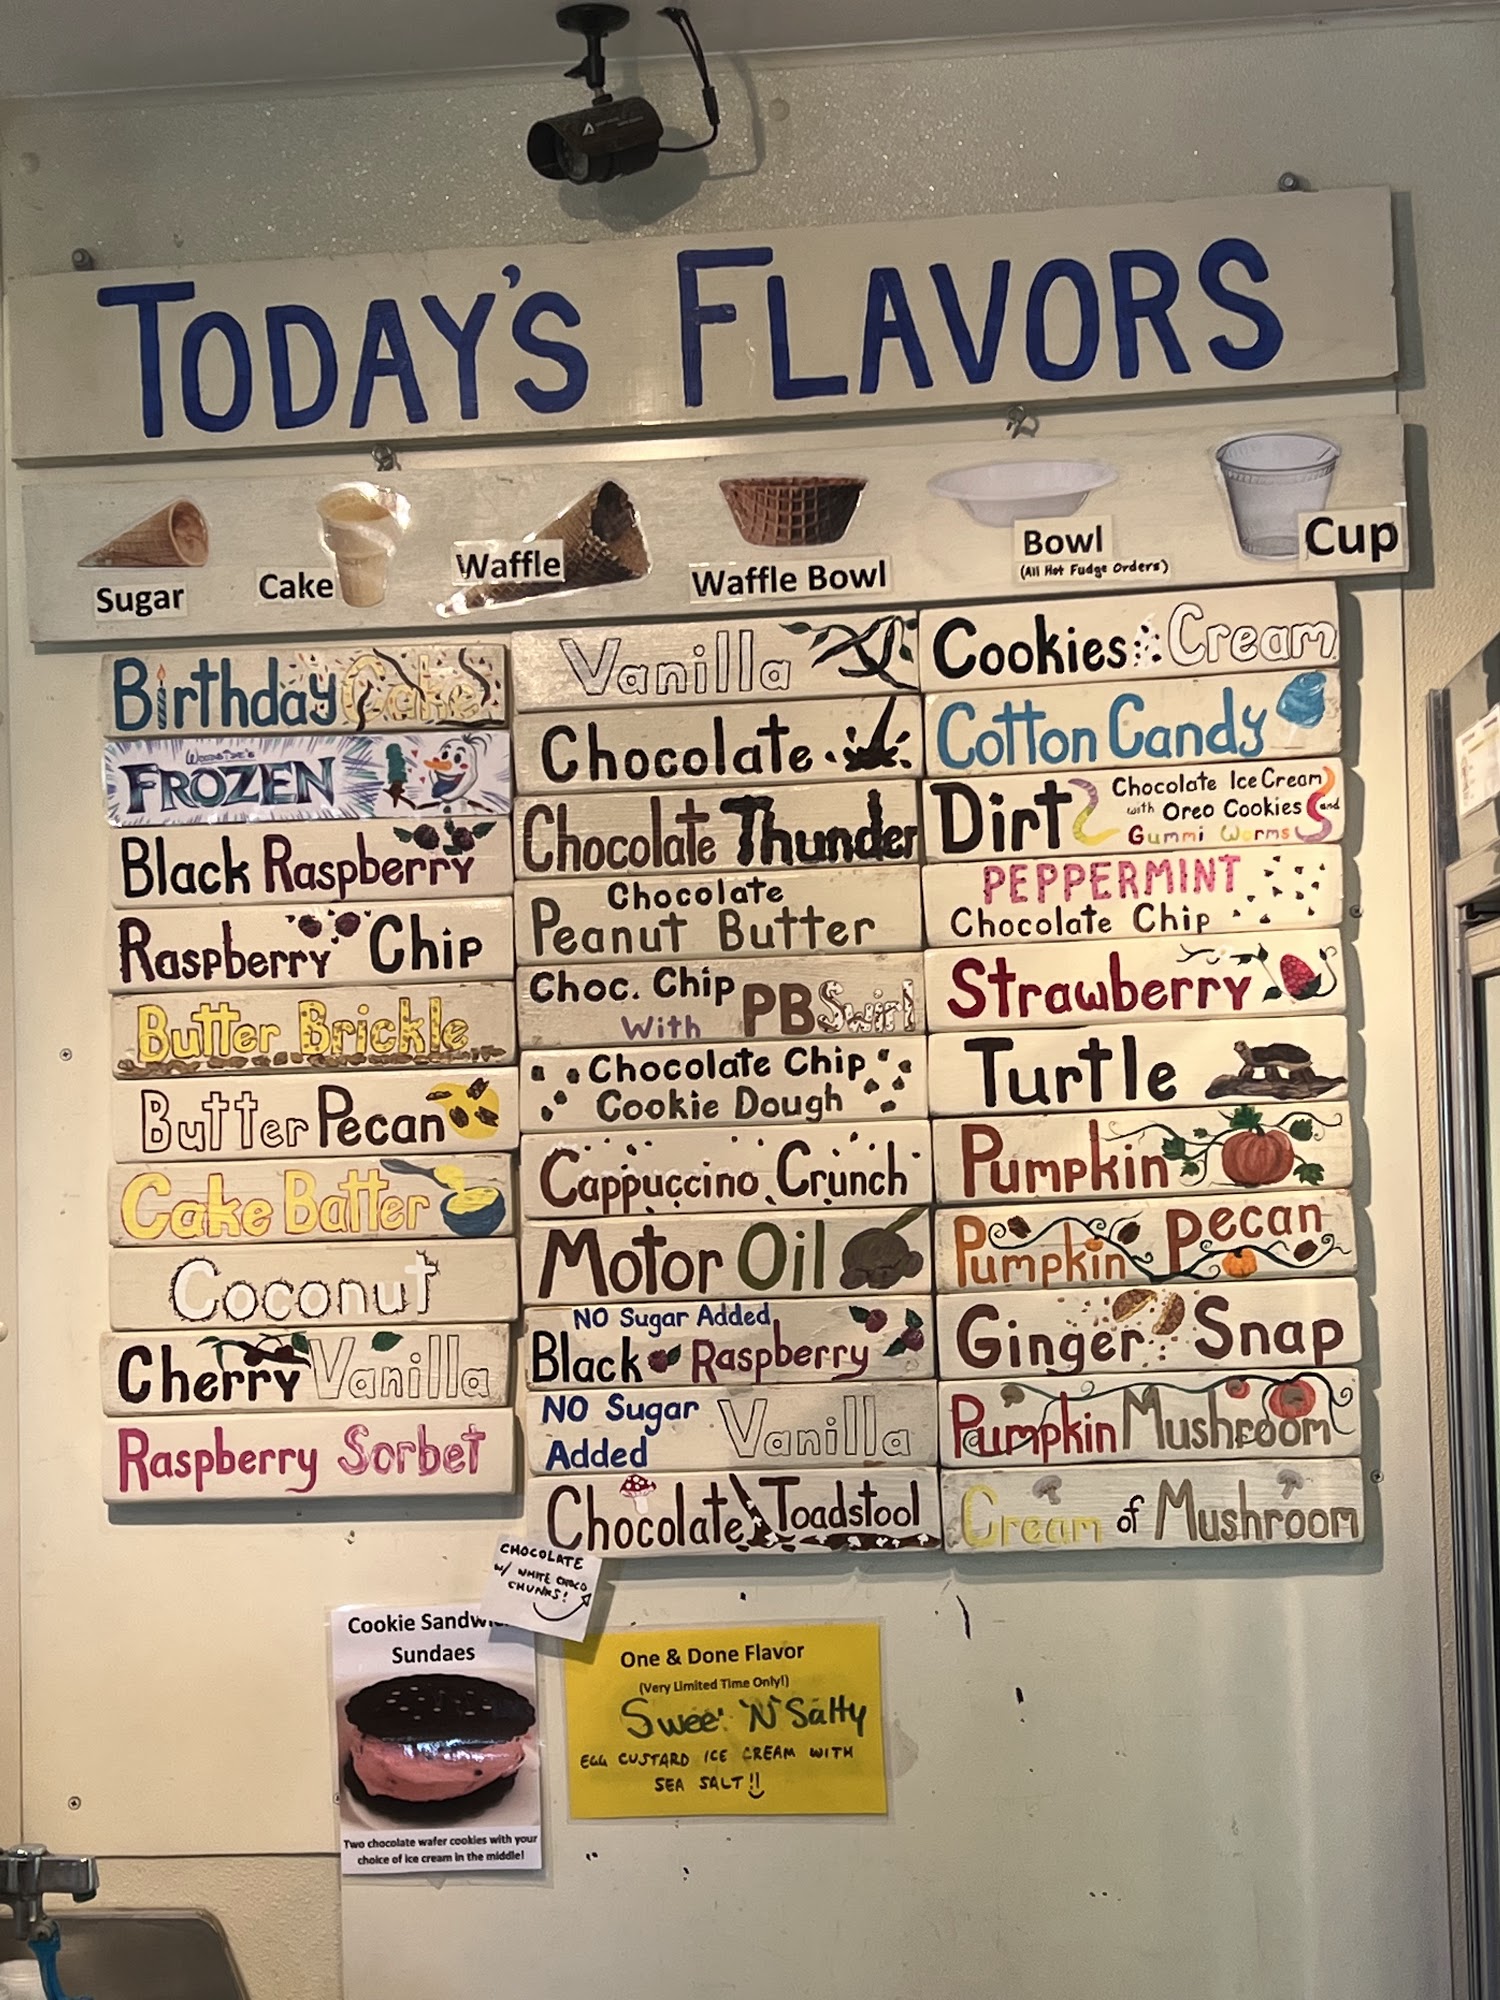 TODAY'S FLAVORS
Sugar
Cake
Waffle
Waffle Bowl
Bowl
(All Hot Fudge Orders)
Cup
Birthday Cake
WOODSIDE'S
FROZEN
Black Raspberry
Raspberry Chip
Butter Brickle
Butter Pecan
Cake Batter
Coconut
Cherry Vanilla
Raspberry Sorbet
Vanilla
Chocolate
Chocolate Thunder
Chocolate
Peanut Butter
Choc. Chip
With PB Swirl
Chocolate Chip
Cookie Dough
Cappuccino Crunch
Motor Oil
NO Sugar Added
Black Raspberry
NO Sugar
Added Vanilla
Chocolate Toadstool
CHOCOLATE
W/ WHITE CHOCO
CHUNKS!
Cookies Cream
Cotton Candy
Dirt
Chocolate Ice Cream
with Oreo Cookies and
Gummi Worms
PEPPERMINT
Chocolate Chip
Strawberry
Turtle
Pumpkin
Pumpkin Pecan
Ginger Snap
Pumpkin Mushroom
Cream of Mushroom
Cookie
Sundaes
Two chocolate wafer cookies with your
choice of ice cream in the middle!
One & Done Flavor
(Very Limited Time Only!)
'N' Salty
EGG CUSTARD ICE CREAM WITH
SEA SALT!!